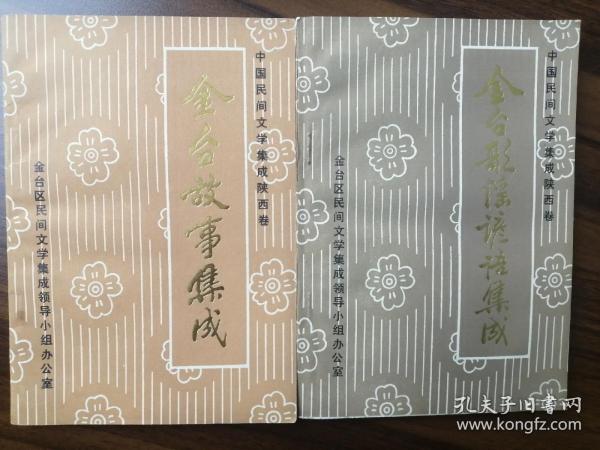 中国民间文学集成陕西卷
金台故事集成
金台区民间文学集成领导小组办公室
中国民间文学集成陕西卷
金台歌谣谚语集成
金台区民间文学集成领导小组办公室
孔夫子旧书网
www.kongfz.com